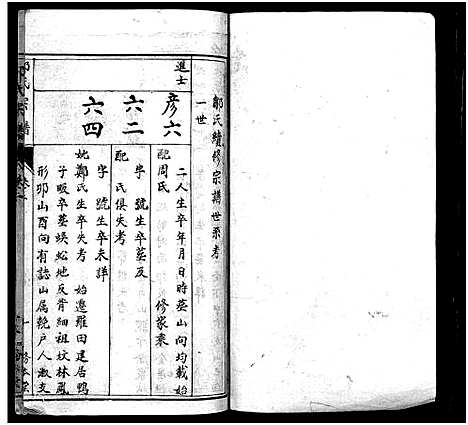 鄒氏續修宗譜世系考
一世
進士
彦六
二人生卒年月日時塟山向均載始
配周氏 修家乘
六二
字 號生卒塟及
配 氏俱失考
六四
字 號生卒未詳
妣鄭氏生卒失考 始遷羅田建居鴨
子畈卒塟蜈蚣地反背細祖坟林鳳
形卯山酉向有誌山属乾户人淑支